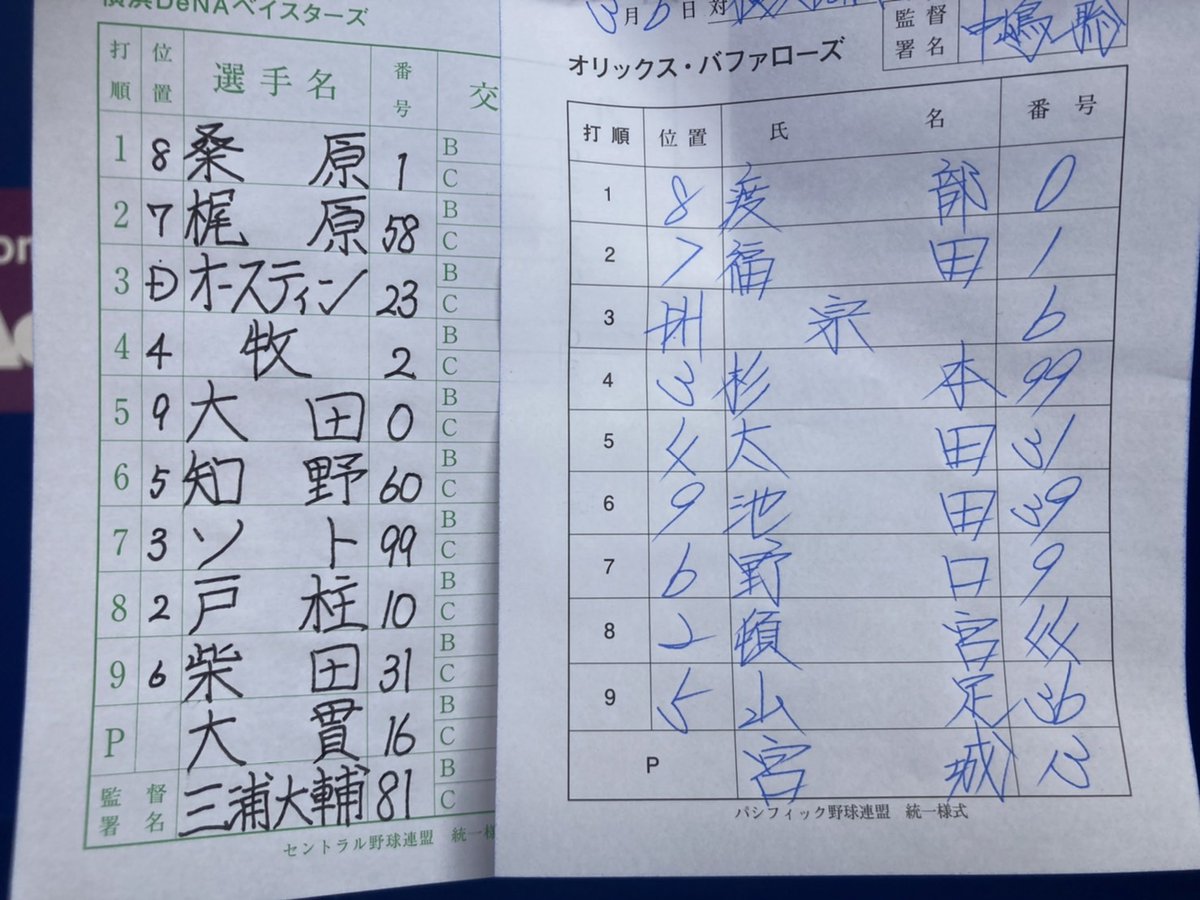 横浜DeNAベイスターズ
打順 位置 選手名 番号 交
1 8 桑原 1 B C
2 7 梶原 58 B C
3 D オースティン 23 B C
4 4 牧 2 B C
5 9 大田 0 B C
6 5 知野 60 B C
7 3 ソト 99 B C
8 2 戸柱 10 B C
9 6 柴田 31 B C
P 大貫 16 B C
監督署名 三浦大輔 81 B C
セントラル野球連盟 統一様
3月6日対
監督署名 中嶋聡
オリックス・バファローズ
打順 位置 氏名 番号
1 8 渡部 0
2 7 福田 1
3 宗 6
4 3 杉本 99
5 4 太田 31
6 9 池田 39
7 6 野口 9
8 2 頓宮 44
9 5 山足 36
P 宮城 13
パシフィック野球連盟 統一様式